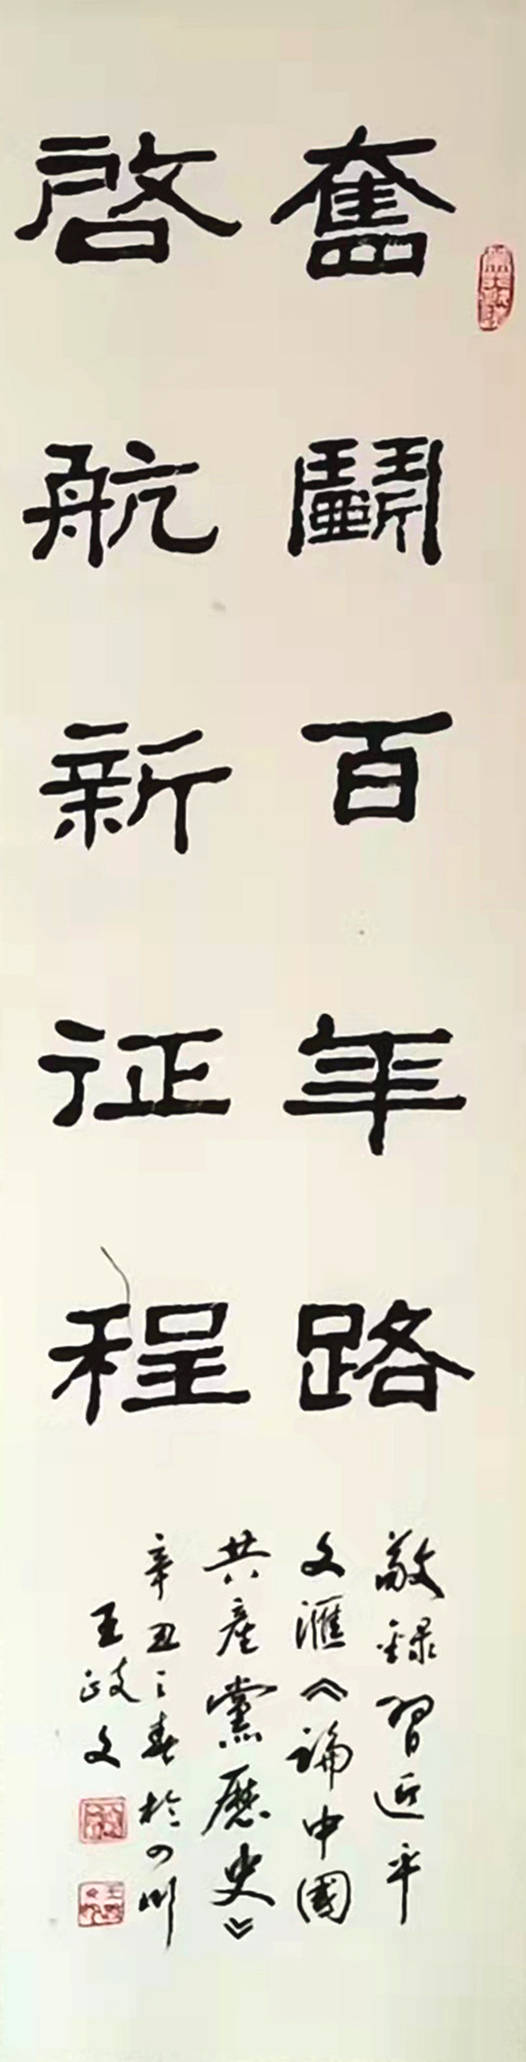 奮鬭百年路
啓航新征程
敬録習近平
文滙《論中國
共產黨歷史》
辛丑之春於四川
王歧文